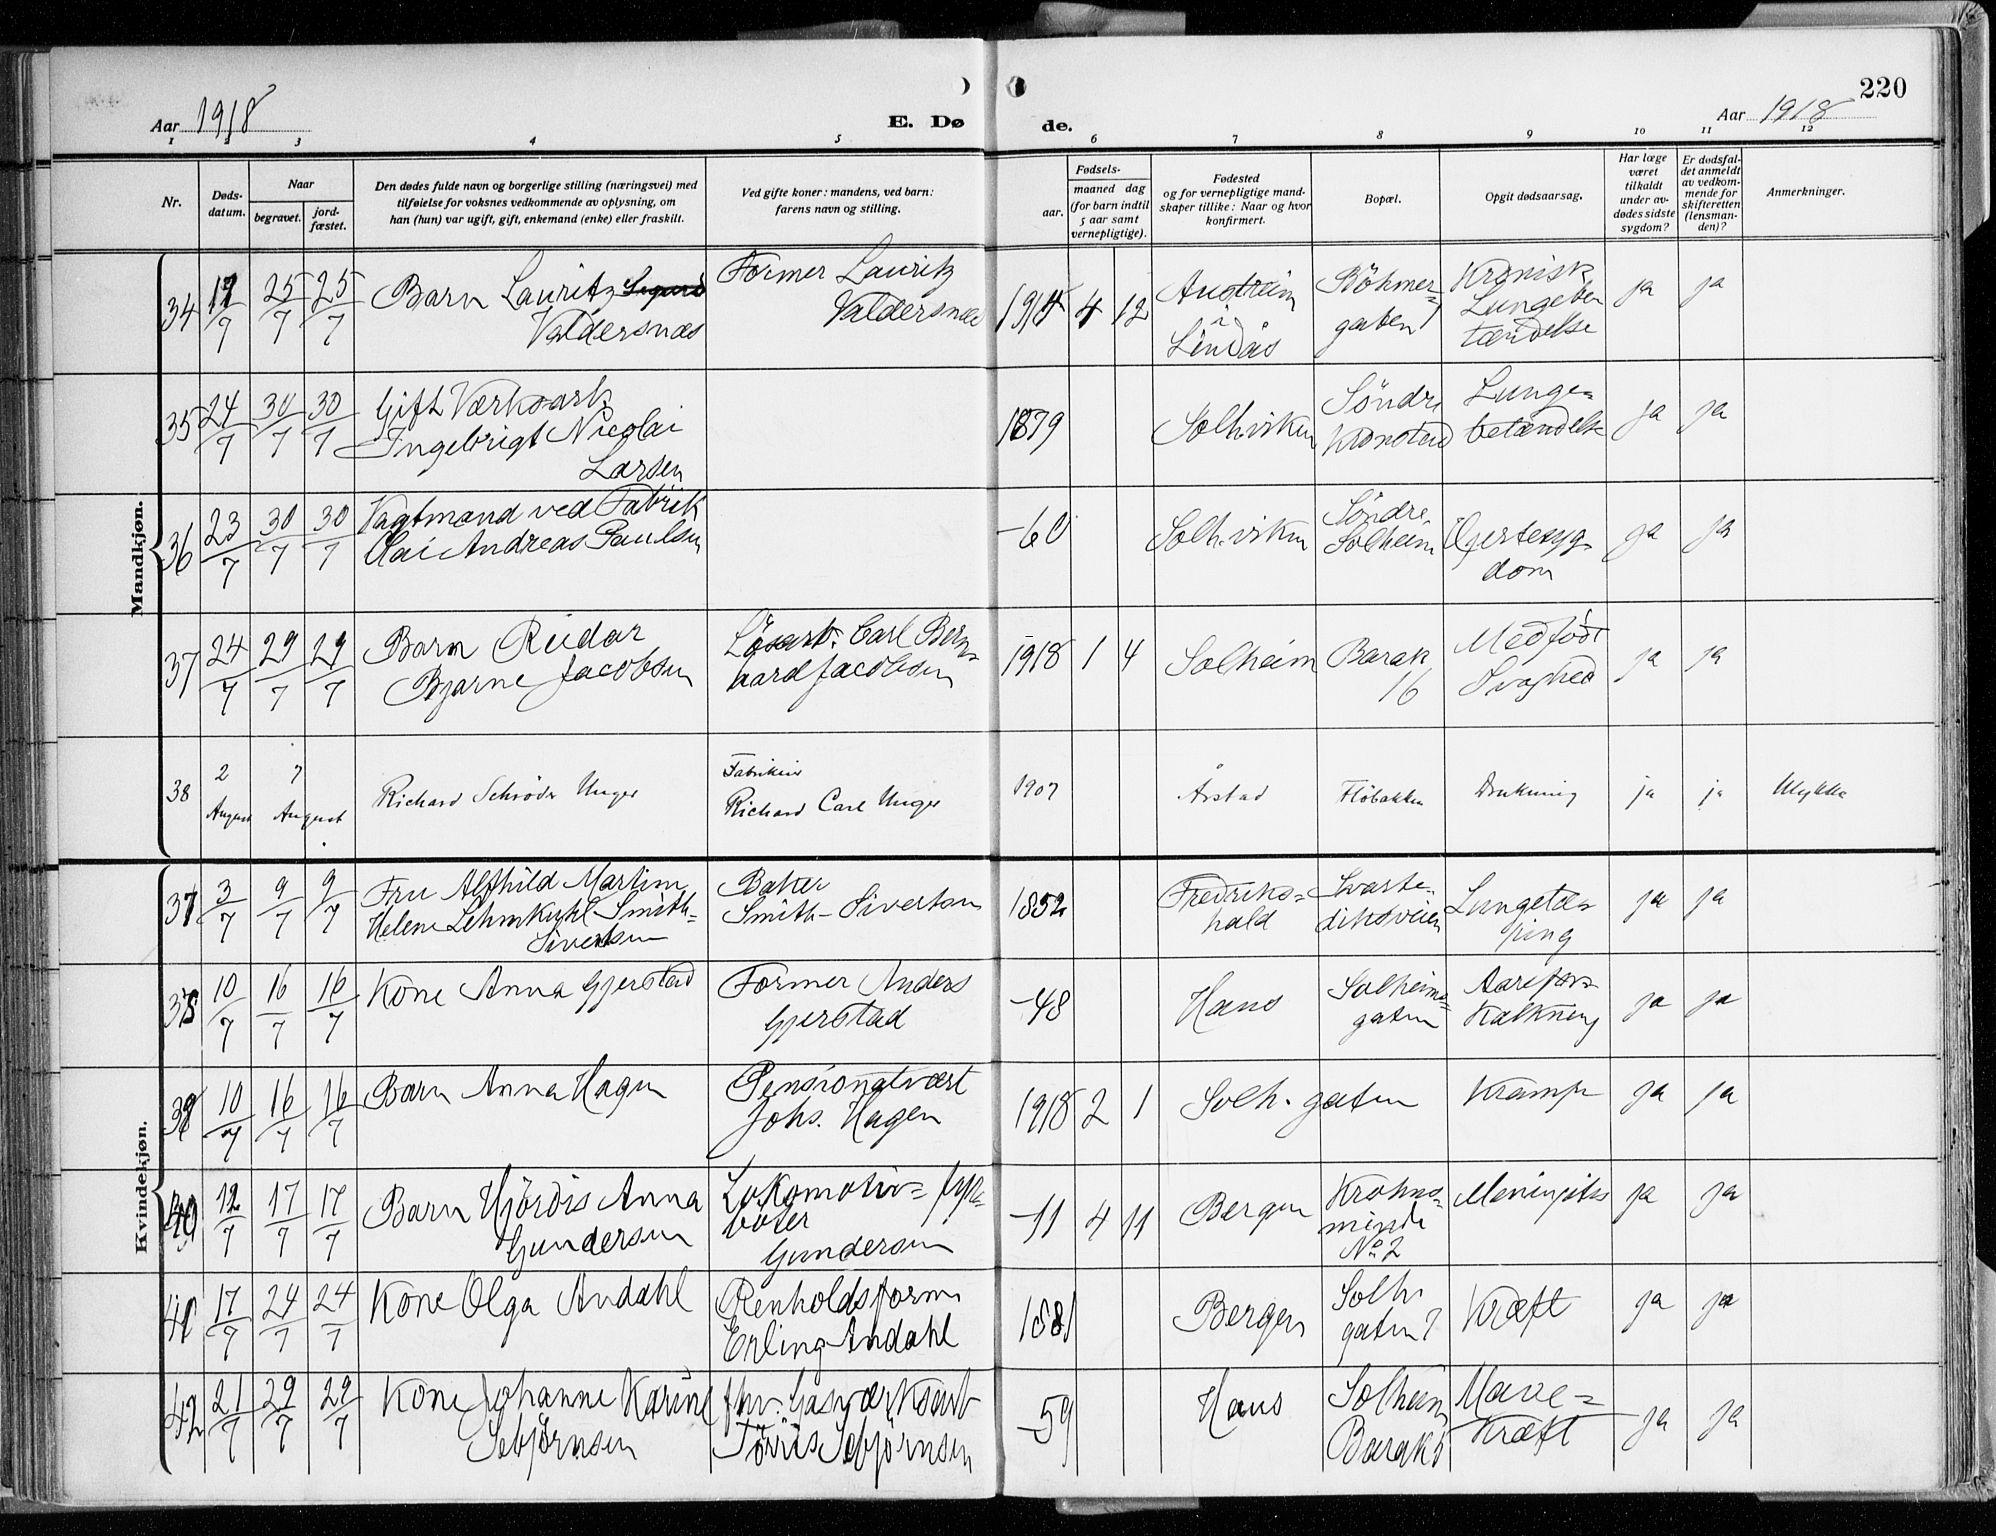 220
Aar 1918
E. Dø
de.
Aar 1918
1 2 3 4 5 6 7 8 9 10 11 12
Nr.
Døds-
datum.
Naar
begravet.
jord-
fæstet.
Den dødes fulde navn og borgerlige stilling (næringsvei) med
tilføielse for voksnes vedkommende av oplysning, om
han (hun) var ugift, gift, enkemand (enke) eller fraskilt.
Ved gifte koner: mandens, ved barn:
farens navn og stilling.
Fødsels-
aar.
maaned dag
(for barn indtil
5 aar samt
vernepligtige).
Fødested
og for vernepligtige mand-
skaper tillike: Naar og hvor
konfirmert.
Bopæl.
Opgit dødsaarsag.
Har læge
været
tilkaldt
under av-
dødes sidste
sygdom?
Er dødsfal-
det anmeldt
av vedkom-
mende for
skifteretten
(lensman-
den)?
Anmerkninger.
Mandkjøn.
34 25/7 25/7
Barn Lauritz
Valdersnæs
Former Lauritz
Valdersnæs
4 12
i
Lindås
Böhmer-
gaten
Kronisk
Lungebe
tændelse
ja ja
35 24/7 30/7 30/7
Gift Værksarb.
Ingebrigt Nicolai
Larsen
1879
Solh.viken
Söndre
Kronstad
Lunge-
betændelse
ja ja
36 23/7 30/7 30/7
Vagtmand ved Fabrik
Olai Andreas Paulsen
-60
Solh.viken
Søndre
Solheim
Hjertesyg-
dom
ja ja
37 24/7 29/7 29/7
Barn Reidar
Bjarne Jacobsen
Løsarb. Carl Bern-
hard Jacobsen
1918 1 4
Solheim
Barak
16
Medfødt
Svaghed
ja ja
38
2
August
7
August
Richard Schrøder Unger
Fabrikeier
Richard Carl Unger
1907
Årstad
Fløbakken
Drukning
ja ja
Ulykke
Kvindekjøn.
37 3/7 9/7 9/7
Fru Alfhild Martine
Helene Lehmkuhl Smith-
Sivertsen
Baker
Smith-Sivertsen
1852
Fredriks-
hald
Svarte-
diksveien
Lungetæ-
ring
ja ja
38 10/7 16/7 16/7
Kone Anna Gjerstad
Former Anders
Gjerstad
-48
Haus
Solheims-
gaten
Aarefor-
kalkning
ja ja
39 10/7 16/7 16/7
Barn Anna Hagen
Pensionatvært
Johs. Hagen
1918 2 1
Solh. gaten
Krampe
ja ja
40 12/7 17/7 17/7
Barn Hjördis Anna
Gundersen
Lokomotiv- fyr-
böter
Gundersen
-11 4 11
Bergen
Krohns-
minde
No 2
Meningitis
ja ja
41 17/7 24/7 24/7
Kone Olga Andahl
Renholdsform.
Erling Andahl
1881
Bergen
Solh.
gaten 7
Kræft
ja ja
42 21/7 29/7 29/7
Kone Johanne Karine
Sebjørnsen
fhv. Gasværksarb
Törris Sebjørnsen
-59
Haus
Solheim
Barak
Mave-
kræft
ja ja